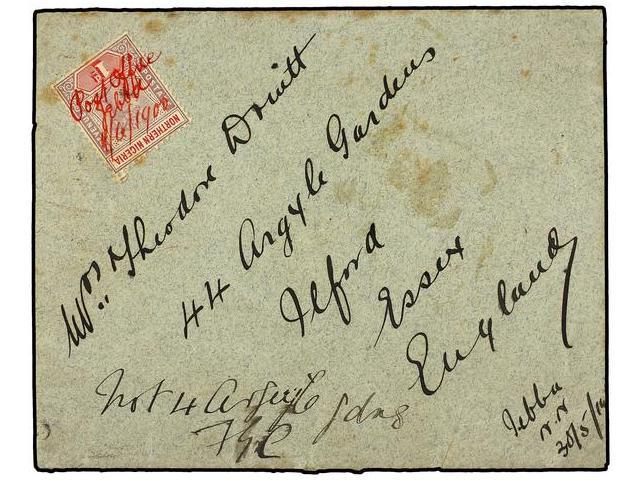 Post Office
Jebba
1/6/1900
NORTHERN NIGERIA
Mrs. Theodore Druitt
44 Argyle Gardens
Ilford
Essex
England
Not 4 Argyle gdns
Jebba
N.N
30/5/